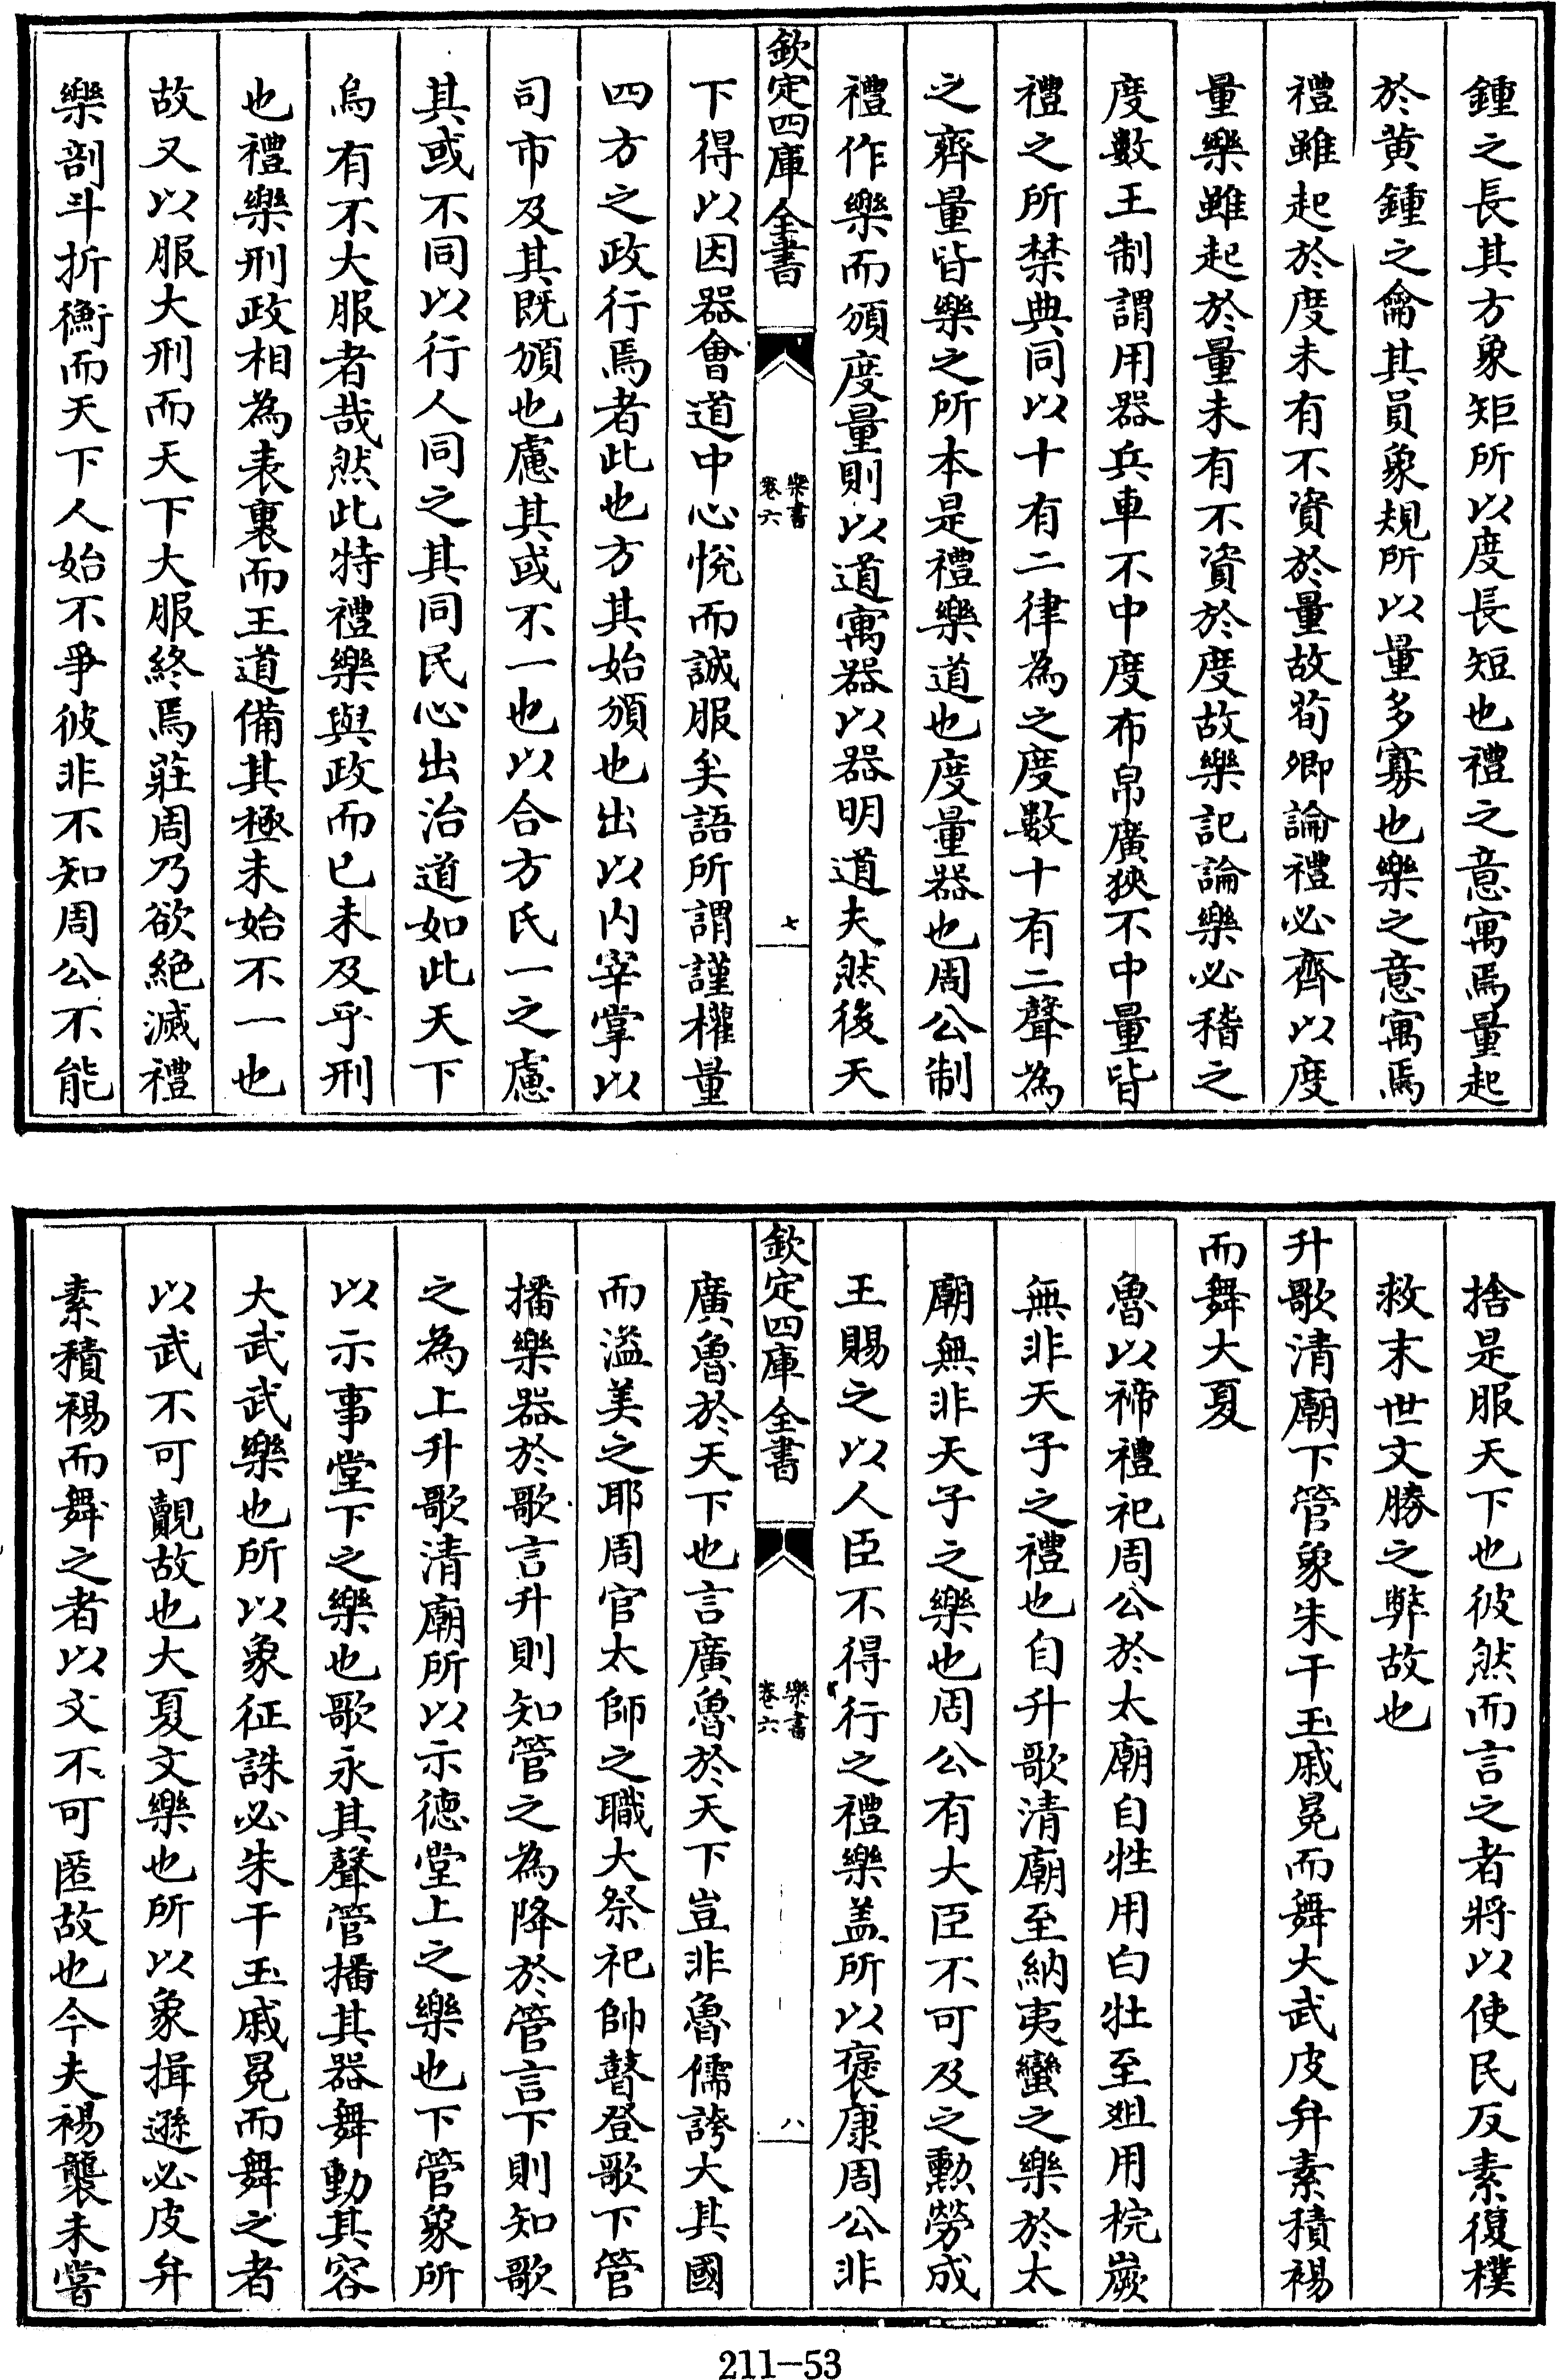 鍾之長其方象矩所以度長短也禮之意寓焉量起
於黄鍾之龠其員象規所以量多寡也樂之意寓焉
禮雖起於度未有不資於量故荀卿論禮必齊以度
量樂雖起於量未有不資於度故樂記論樂必稽之
度數王制謂用器兵車不中度布帛廣狹不中量皆
禮之所禁典同以十有二律為之度數十有二聲為
之齊量皆樂之所本是禮樂道也度量器也周公制
禮作樂而頒度量則以道寓器以器明道夫然後天
欽定四庫全書
樂書
卷六
七
下得以因器會道中心悅而誠服矣語所謂謹權量
四方之政行焉者此也方其始頒也出以内宰掌以
司市及其既頒也慮其或不一也以合方氏一之慮
其或不同以行人同之其同民心出治道如此天下
烏有不大服者哉然此特禮樂與政而已未及乎刑
也禮樂刑政相為表裏而王道備其極未始不一也
故又以服大刑而天下大服終焉莊周乃欲絶滅禮
樂剖斗折衡而天下人始不爭彼非不知周公不能
捨是服天下也彼然而言之者將以使民反素復樸
救末世文勝之弊故也
升歌清廟下管象朱干玉戚冕而舞大武皮弁素積裼
而舞大夏
魯以禘禮祀周公於太廟自牲用白牡至俎用梡嶡
無非天子之禮也自升歌清廟至納夷蠻之樂於太
廟無非天子之樂也周公有大臣不可及之勲勞成
王賜之以人臣不得行之禮樂盖所以褒康周公非
欽定四庫全書
樂書
卷六
八
廣魯於天下也言廣魯於天下豈非魯儒誇大其國
而溢美之耶周官太師之職大祭祀帥瞽登歌下管
播樂器於歌言升則知管之為降於管言下則知歌
之為上升歌清廟所以示德堂上之樂也下管象所
以示事堂下之樂也歌永其聲管播其器舞動其容
大武武樂也所以象征誅必朱干玉戚冕而舞之者
以武不可覿故也大夏文樂也所以象揖遜必皮弁
素積裼而舞之者以文不可匿故也今夫裼襲未嘗
211-53